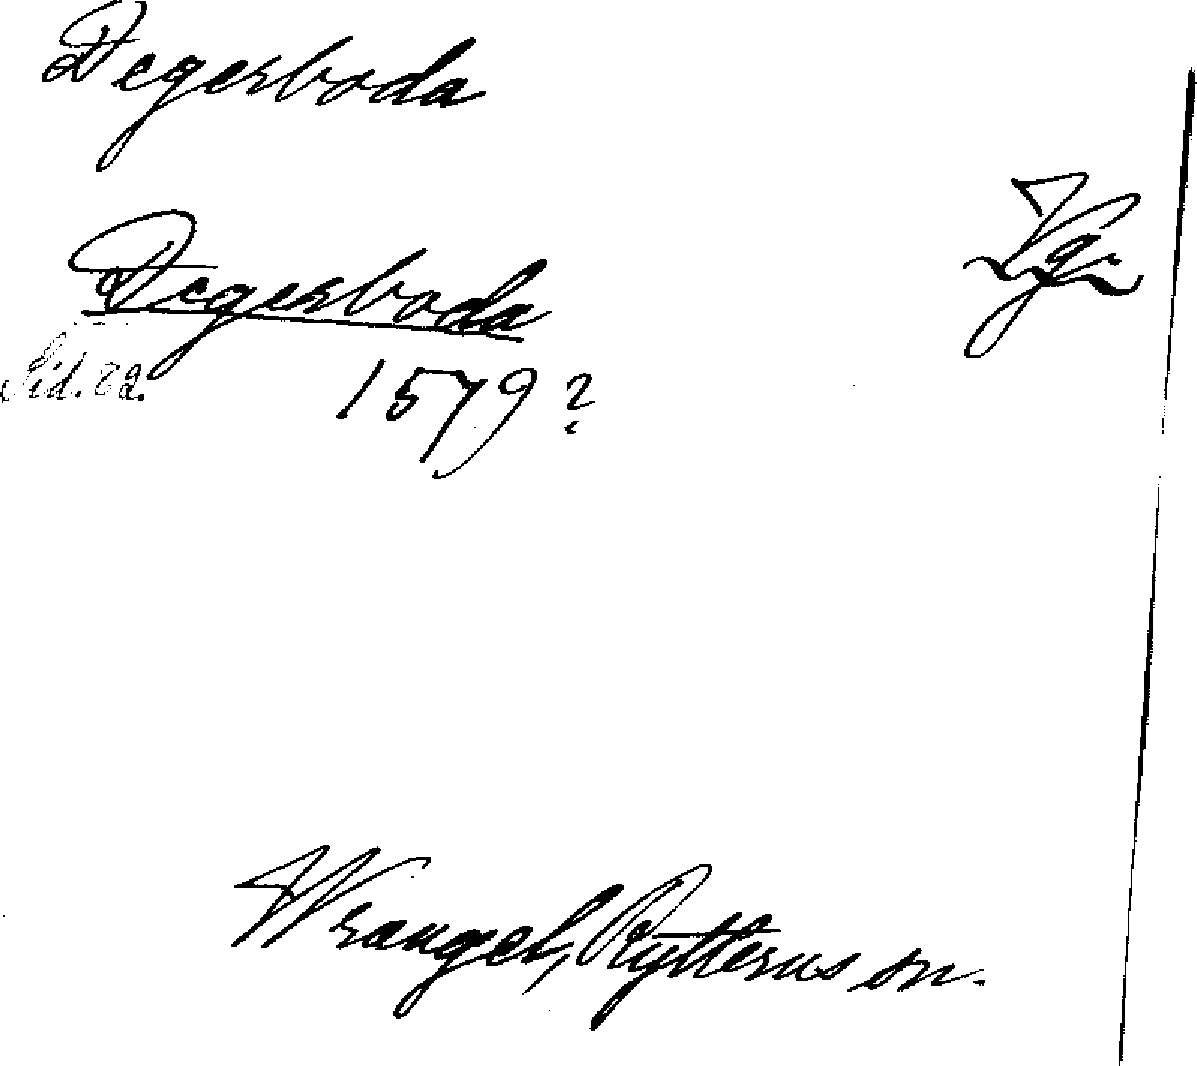 Degerboda
Vg.
Degerboda
Sid. 82.
1579?
Wrangel, Rytternes sn.